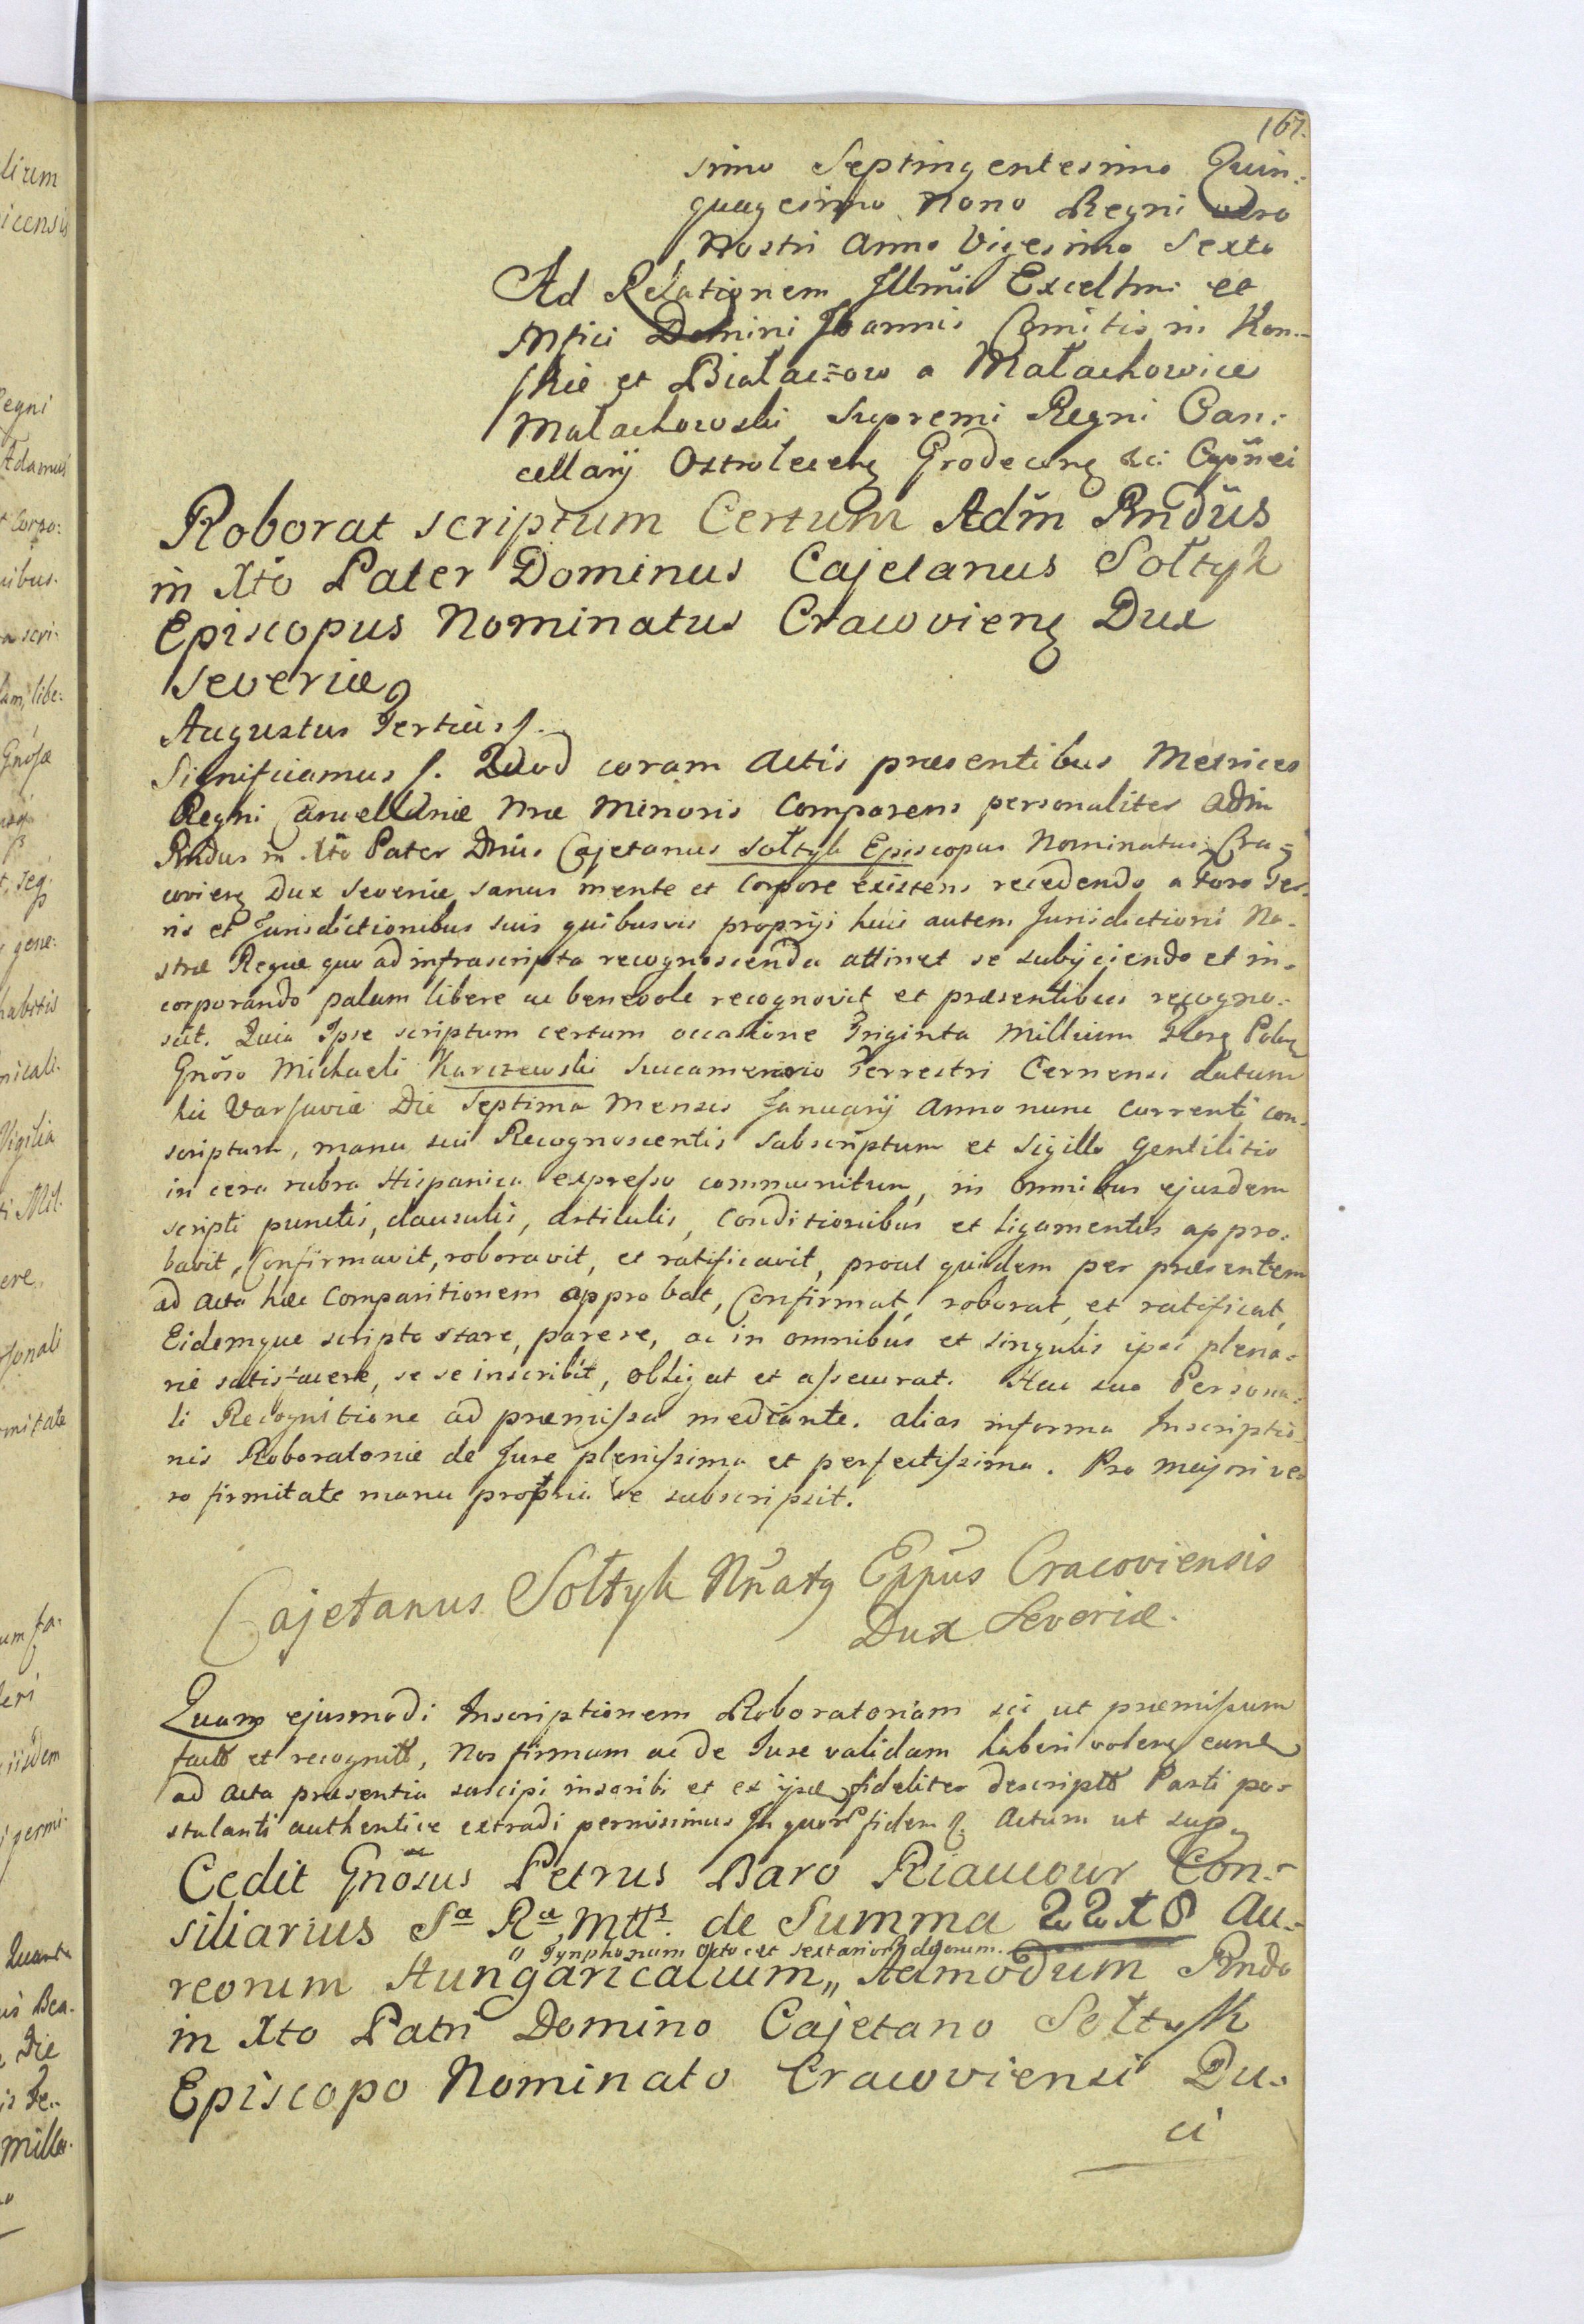 167.
simo Septingentesimo Quin:
quagesimo Nono Regni vero
Nostri Anno Vigesimo Sexto
Ad Relationem Illmi Excellmi et
Mfici Domini Joannis Comitis in Kon-
skie et Białaczow a Małachowice
Małachowski Supremi Regni Can:
cellarij Ostrolecens Grodecens &ci Capnei
Roborat scriptum Certum Adm Rndus
in Xto Pater Dominus Cajetanus Sołtyk
Episcopus Nominatus Cracoviens Dux
Severiæ
Augustus Tertius f.
Significamus f. Quod coram Actis præsentibus Metrices
Regni Cancellariæ Nræ Minoris Comparens personaliter Adm
Rndus in Xto Pater Dnus Cajetanus Sołtyk Episcopus Nominatus Cra=
coviens Dux Severiæ sanus mente et Corpore existens recedendo a Foro Ter-
ris et Jurisdictionibus suis quibusvis proprijs huic autem Jurisdictioni No-
stræ Regiæ quo ad infrascripta recognoscenda attinet se subijciendo et in-
corporando palam libere ac benevole recognovit et præsentibus recogno-
scit. Quia Ipse scriptum certum occasione Triginta Millium Flore Polon
Gnoso Michaeli Karczewski Succamerario Terrestri Cernensi datum
hic Varsaviæ Die Septima Mensis Januarij Anno nunc Currenti con-
scriptum, manu sui Recognoscentis Subscriptum et Sigillo Gentilitio
in cera rubra Hispanica expresso communitum, in Omnibus ejusdem
scripti punctis, clausulis, Articulis, Conditionibus et ligamentis appro-
bavit, Confirmavit, roboravit, et ratificavit, prout quidem per præsentem
ad Acta hæc Comparitionem approbat, Confirmat, roborat, et ratificat,
Eidemque scripto stare, parere, ac in omnibus et singulis ipsi plena-
rie satisfacere, se se inscribit, Obligat et assecurat. Hac sua Persona-
li Recognitione ad præmissa mediante. alias in forma Inscriptio-
nis Roboratoriæ de Jure plenissima et perfectissima. Pro Majori ve-
ro firmitate manu propria se subscripsit.
Cajetanus Sołtyk Nnatus Eppus Cracoviensis
Dux Severiæ.
Quam ejusmodi Inscriptionem Roboratoriam sic ut præmissum
factam et recognitam, Nos firmam ac de Iure validam haberi volens eand
ad Acta præsentia suscipi inscribi et ex ijsd fideliter descriptam Parti po-
stulanti authentice extradi permisimus In quor fidem f. Actum ut sup.
Cedit Gnosus Petrus Baro Riaucour Con-
siliarius Sæ Ræ Mttis de Summa 2218 Au-
Tynphonum Octo et
reorum Hungaricalium,, Admodum Rndo
in Xto Patri Domino Cajetano Sołtyk
Episcopo Nominato Cracoviensi Du-
ci